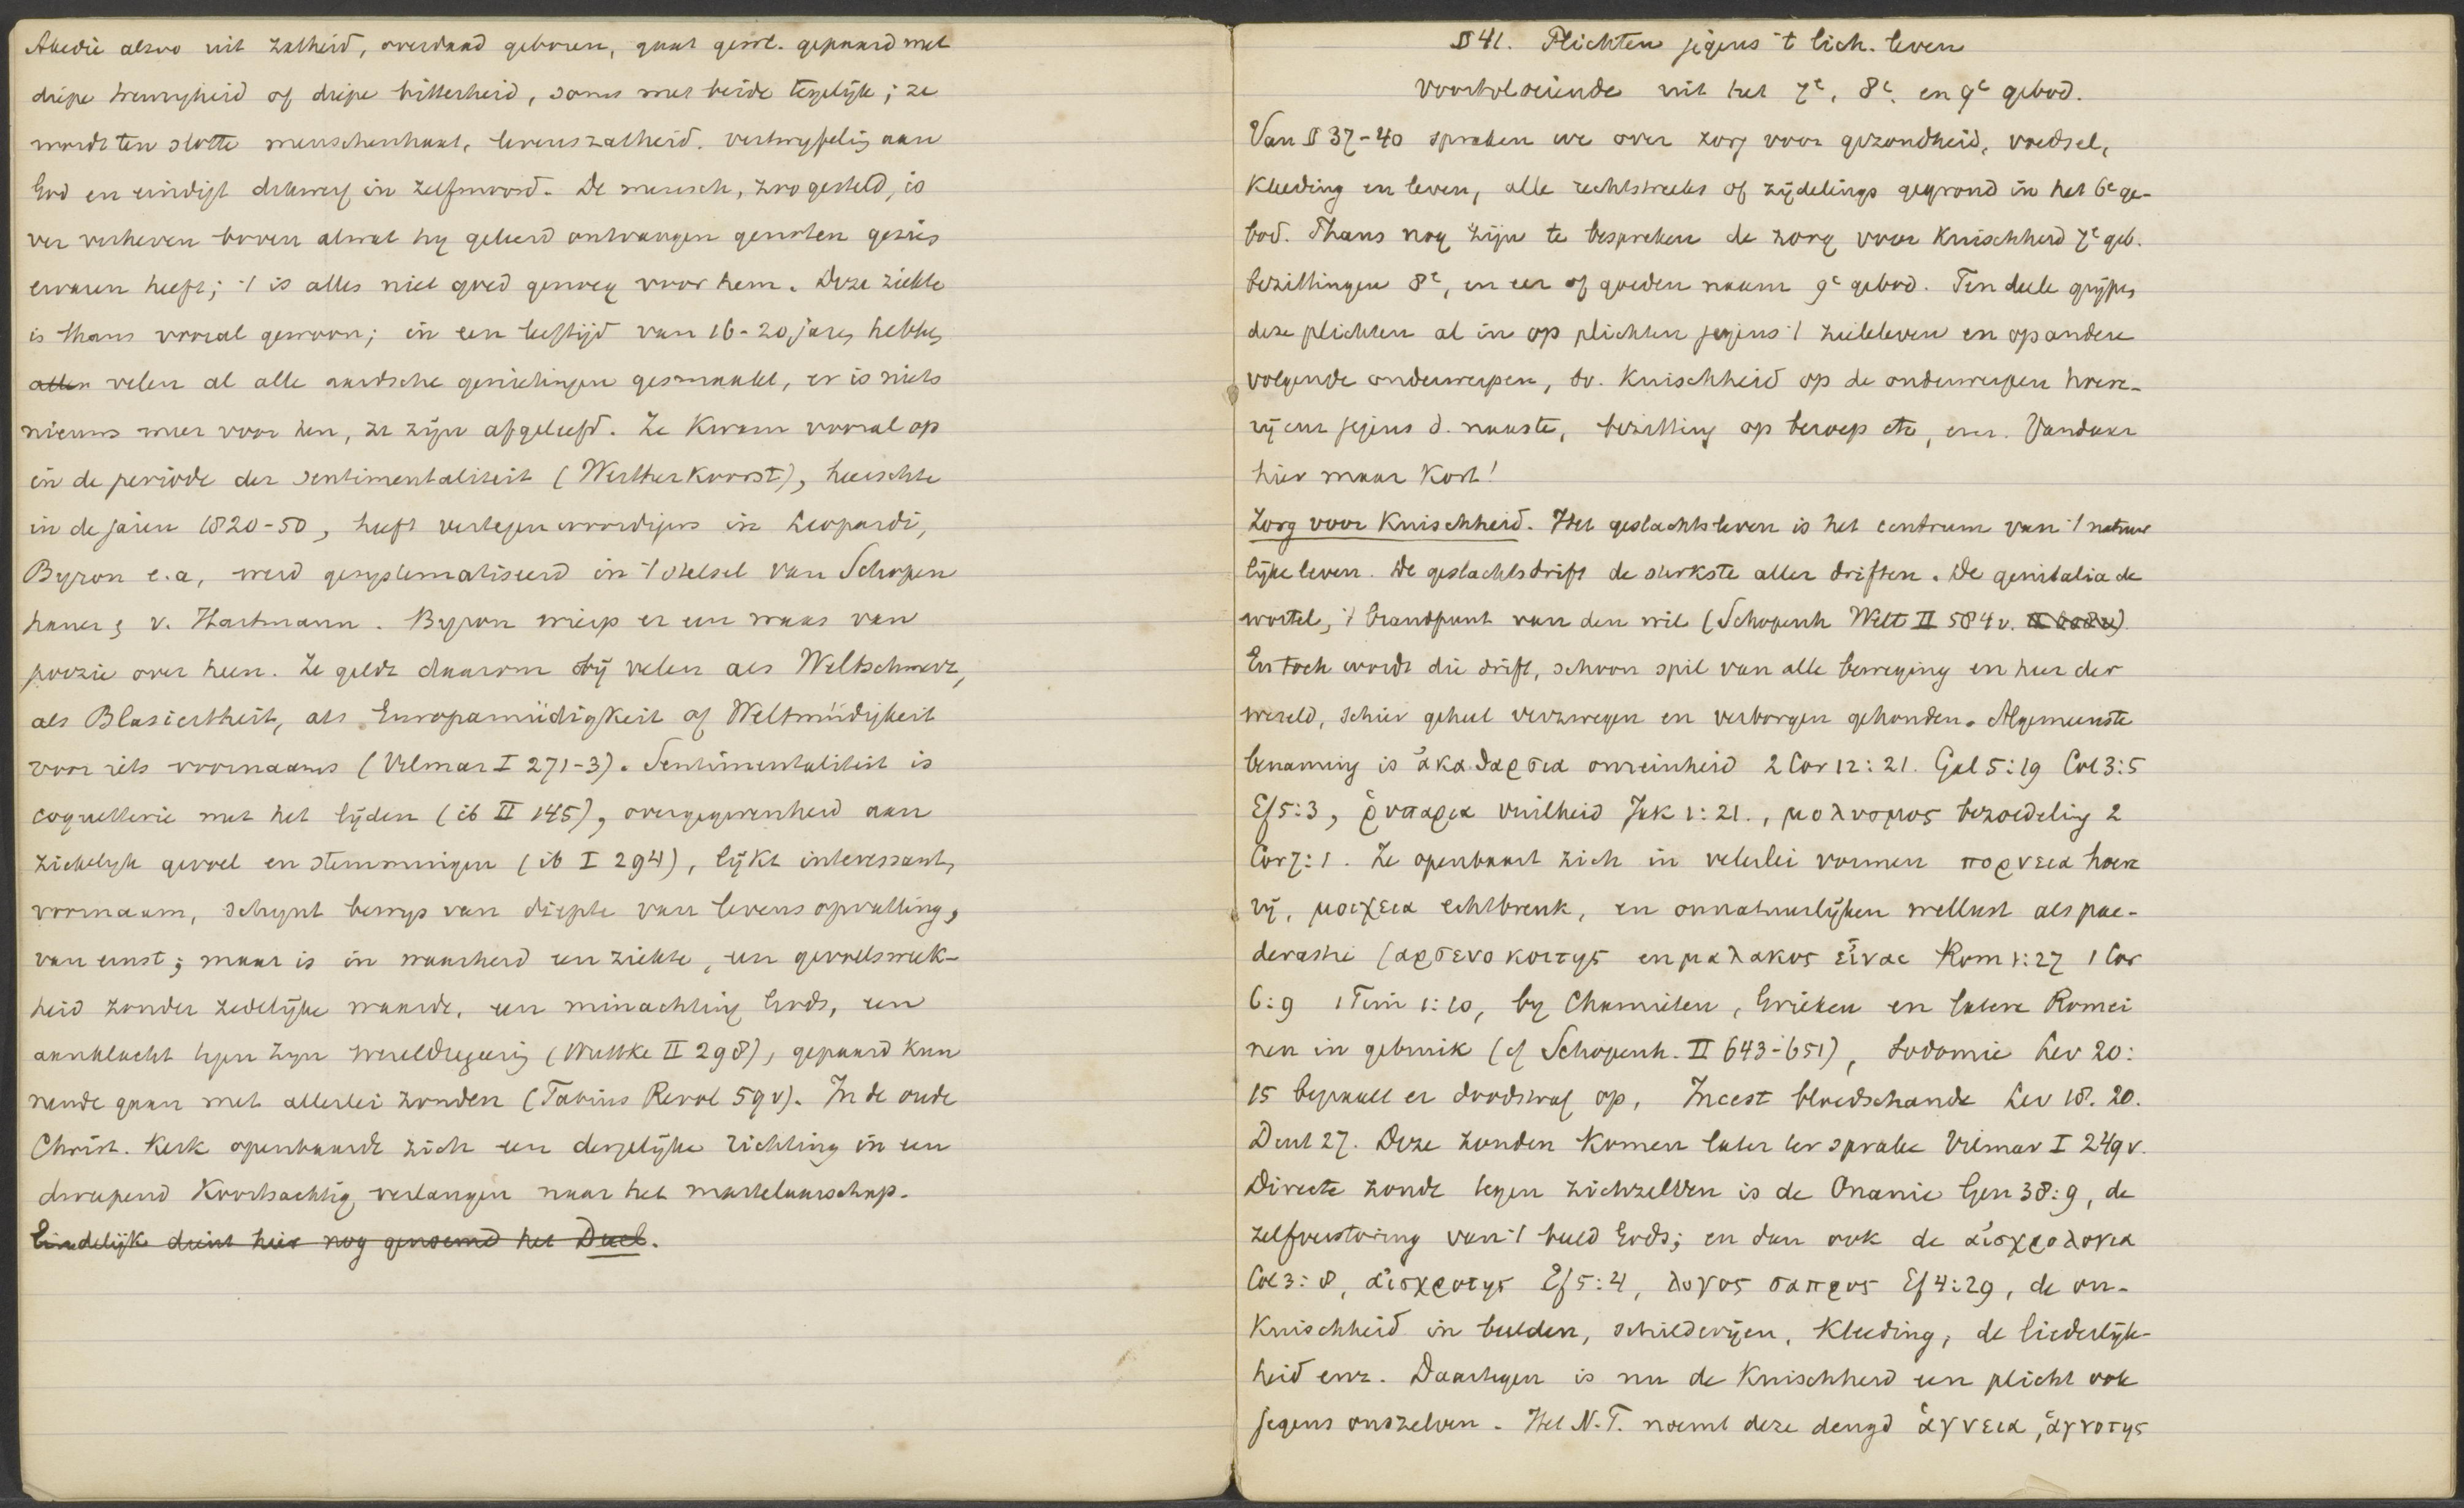 Akedie alzoo uit zatheid, overdaad geboren, gaat gewl. gepaard met
diepe treurigheid of diepe bitterheid, soms met beide tegelijk; ze
wordt ten slotte menschenhaat, levenszatheid, vertwijfeling aan
God en eindigt dikwerf in zelfmoord. De mensch, zoo gesteld, is
ver verheven boven alwat hij geleerd ontvangen genoten gezien
ervaren heeft; 't is alles niet goed genoeg voor hem. Deze ziekte
is thans vooral gewoon; in een leeftijd van 16-20 jaren hebben
allen velen al alle aardsche genietingen gesmaakt, er is niets
nieuws meer voor hen, ze zijn afgeleefd. Ze kwam vooral op
in de periode der sentimentaliteit (Wertherkoorst), heerschte
in de jaren 1820-50, heeft vertegenwoordigers in Leopardi,
Byron e.a, werd gesystematiseerd in 't stelsel van Schopen
hauer & v. Hartmann. Byron wierp er een waas van
poezie over heen. Ze geldt daarom bij velen als Weltschmerz,
als Blasiertheit, als Europamüdigkeit of Weltmüdigkeit
voor iets voornaams (Vilmar I 271-3). Sentimentaliteit is
coquetterie met het lijden (ib II 145), overgegevenheid aan
ziekelijk gevoel en stemmingen (ib I 294), lijkt interessant,
voornaam, schijnt bewijs van diepte van levensopvatting,
van ernst; maar is in waarheid een ziekte, een gevoelsweek-
heid zonder zedelijke waarde, een minachting Gods, een
aanklacht tegen zijn wereldregeering (Wuttke II 298), gepaard kun
nende gaan met allerlei zonden (Fabius Revol 59v). In de oude
Christ. Kerk openbaarde zich een dergelijke richting in een
dweepend koortsachtig verlangen naar het martelaarschap.
Eindelijk dient hier nog genoemd het Duel.
§ 41. Plichten jegens 't lich. leven
voortvloeiende uit het 7e, 8e en 9e gebod.
Van § 37-40 spraken we over zorg voor gezondheid, voedsel,
kleeding en leven, alle rechtstreeks of zijdelings gegrond in het 6e ge-
bod. Thans nog zijn te bespreken de zorg voor kuischheid 7e geb.
bezittingen 8e, en eer of goeden naam 9e gebod. Ten deele grijpen
deze plichten al in op plichten jegens 't zieleleven en op andere
volgende onderwerpen, bv. kuischheid op de onderwerpen hoere-
rij enz jegens d. naaste, bezitting op beroep etc, enz. Vandaar
hier maar kort!
Zorg voor kuischheid. Het geslachtsleven is het centrum van 't natuur
lijke leven. De geslachtsdrift de sterkste aller driften. De genitalia de
wortel, 't brandpunt van den wil (Schopenh Welt II 584v.
En toch wordt die drift, schoon spil van alle beweging en heer der
wereld, schier geheel verzwegen en verborgen gehouden. Algemeenste
benaming is ἀκαθαρσια onreinheid 2 Cor 12:21. Gal 5:19 Col 3:5
Ef 5:3, ῥυπαρια vuilheid Jak 1:21., μολυσμος bezoedeling 2
Cor 7:1. Ze openbaart zich in velerlei vormen πορνεια hoere
rij, μοιχεια echtbreuk, en onnatuurlijken wellust als pae-
derastie (αρσενοκοιτης en μαλακος εἰναι Rom 1:27 1 Cor
6:9 1 Tim 1:10, bij Chamieten, Grieken en latere Romei
nen in gebruik (cf Schopenh. II 643-651), Sodomie Lev 20:
15 bepaalt er doodstraf op, Incest bloedschande Lev 18. 20.
Deut 27. Deze zonden komen later ter sprake Vilmar I 249v.
Directe zonde tegen zichzelven is de Onanie Gen 38:9, de
zelfverstoring van 't beeld Gods; en dan ook de αἰσχρολογια
Col 3:8, αἰσχροτης Ef 5:4, λογος σαπρος Ef 4:29, de on-
kuischheid in beelden, schilderijen, kleeding, de liederlijk-
heid enz. Daartegen is nu de kuischheid een plicht ook
jegens onszelven. Het N.T. noemt deze deugd ἁγνεια, ἁγνοτης